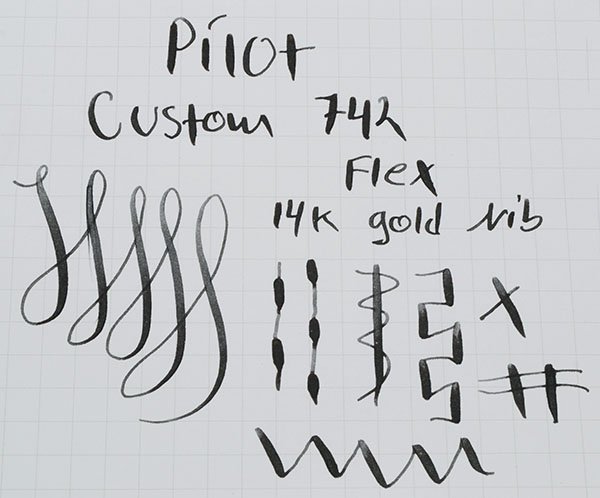 Pilot
Custom 742
Flex
14K gold Nib